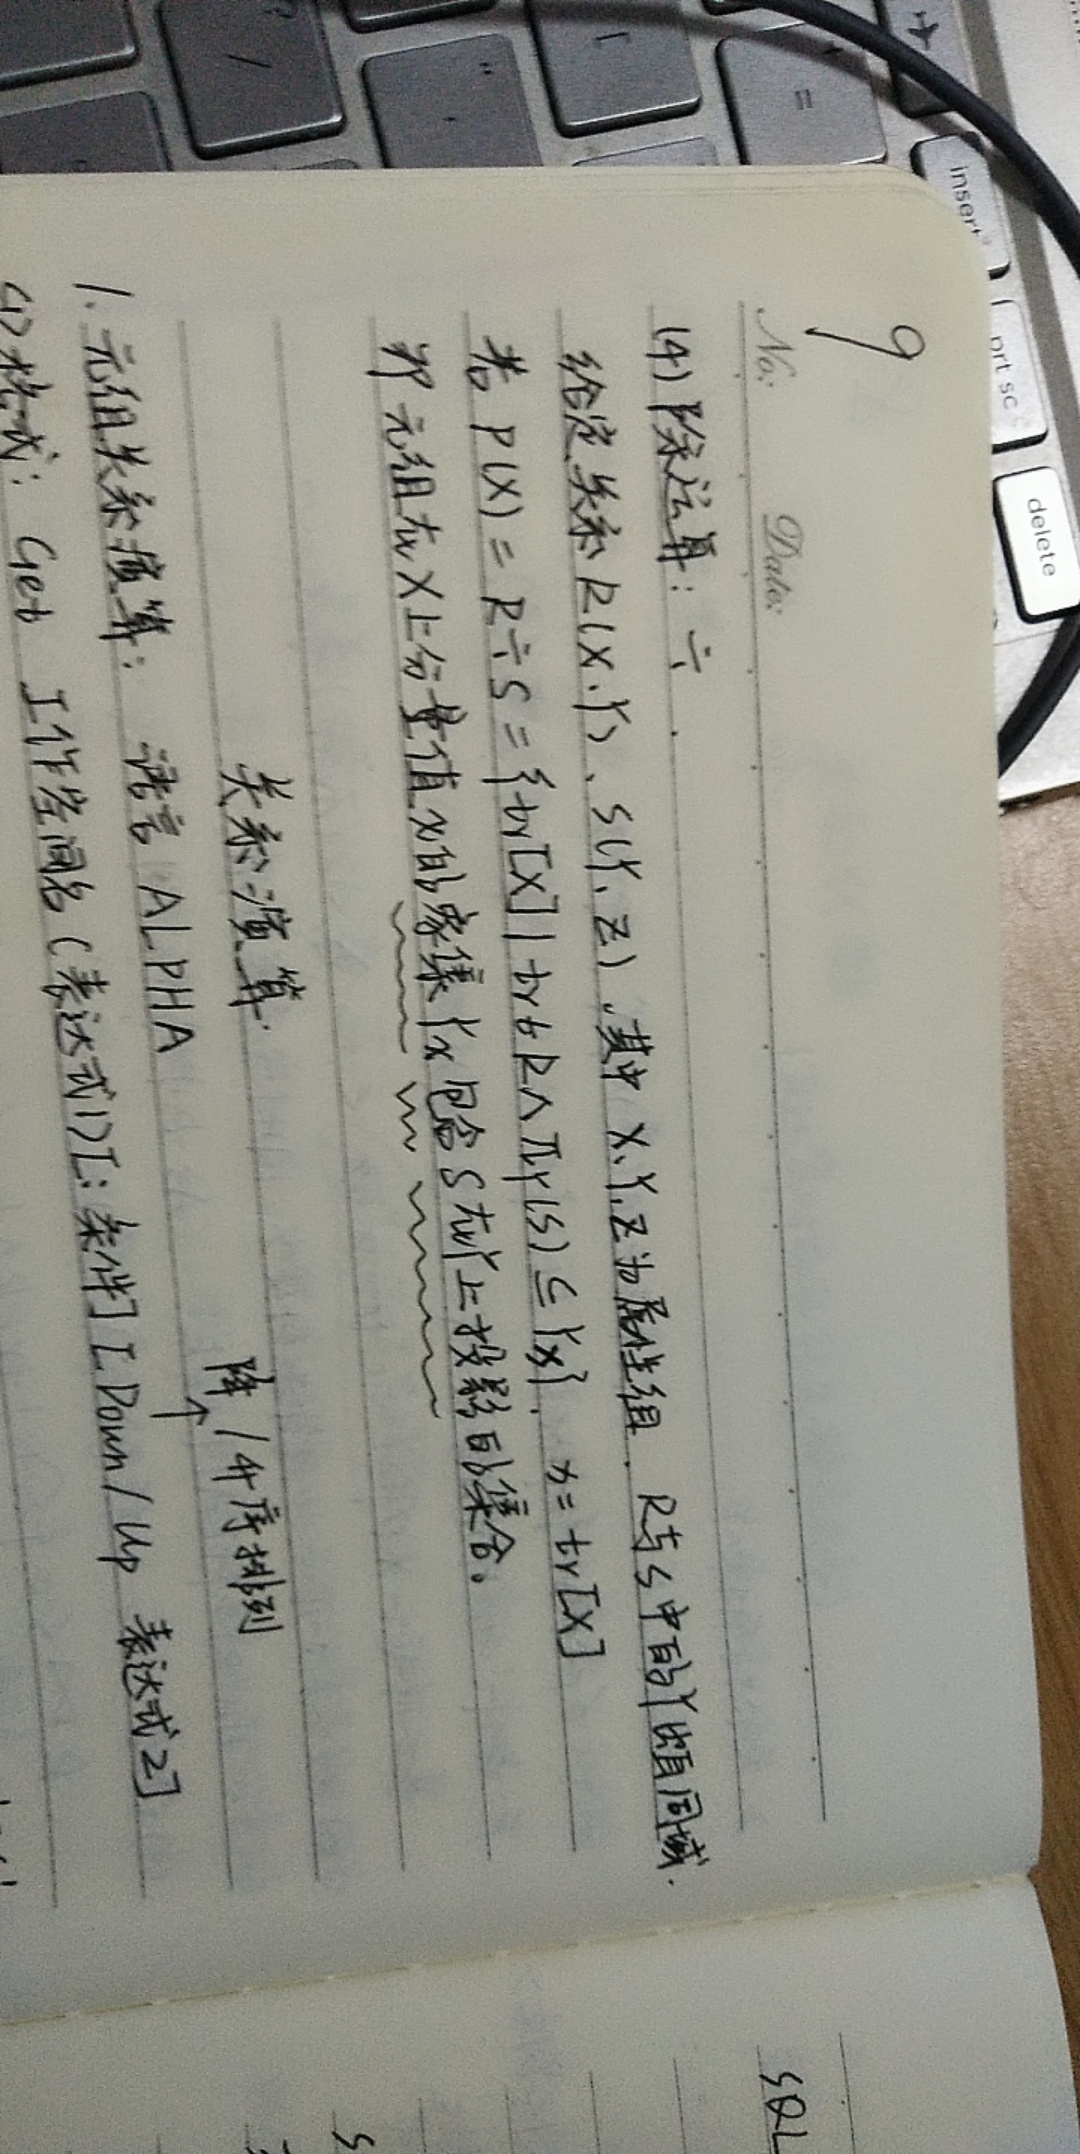 9
No: Date:
(4) 除运算: ÷.
给定关系 R(X.Y)、S(Y.Z),其中 X.Y.Z为属性组. R与S中的Y出自同域.
若 P(X) = R÷S = {tr[X] | tr∈R∧πY(S)⊆Yx}. x=tr[X]
即元组在X上分量值x的象集Yx包含S在Y上投影的集合。
关系演算.
1. 元组关系演算: 语言 ALPHA
降/升序排列
↑
(1)格式: Get 工作空间名(表达式1)[:条件][Down/Up 表达式2]
SQL
S
insert
prt sc
delete